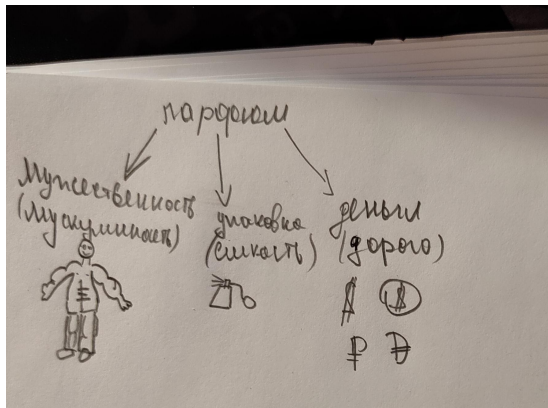 парфюм
Мужественность
(Мускулинность)
упаковка
(ёмкость)
деньги
(дорого)
$ $
₽